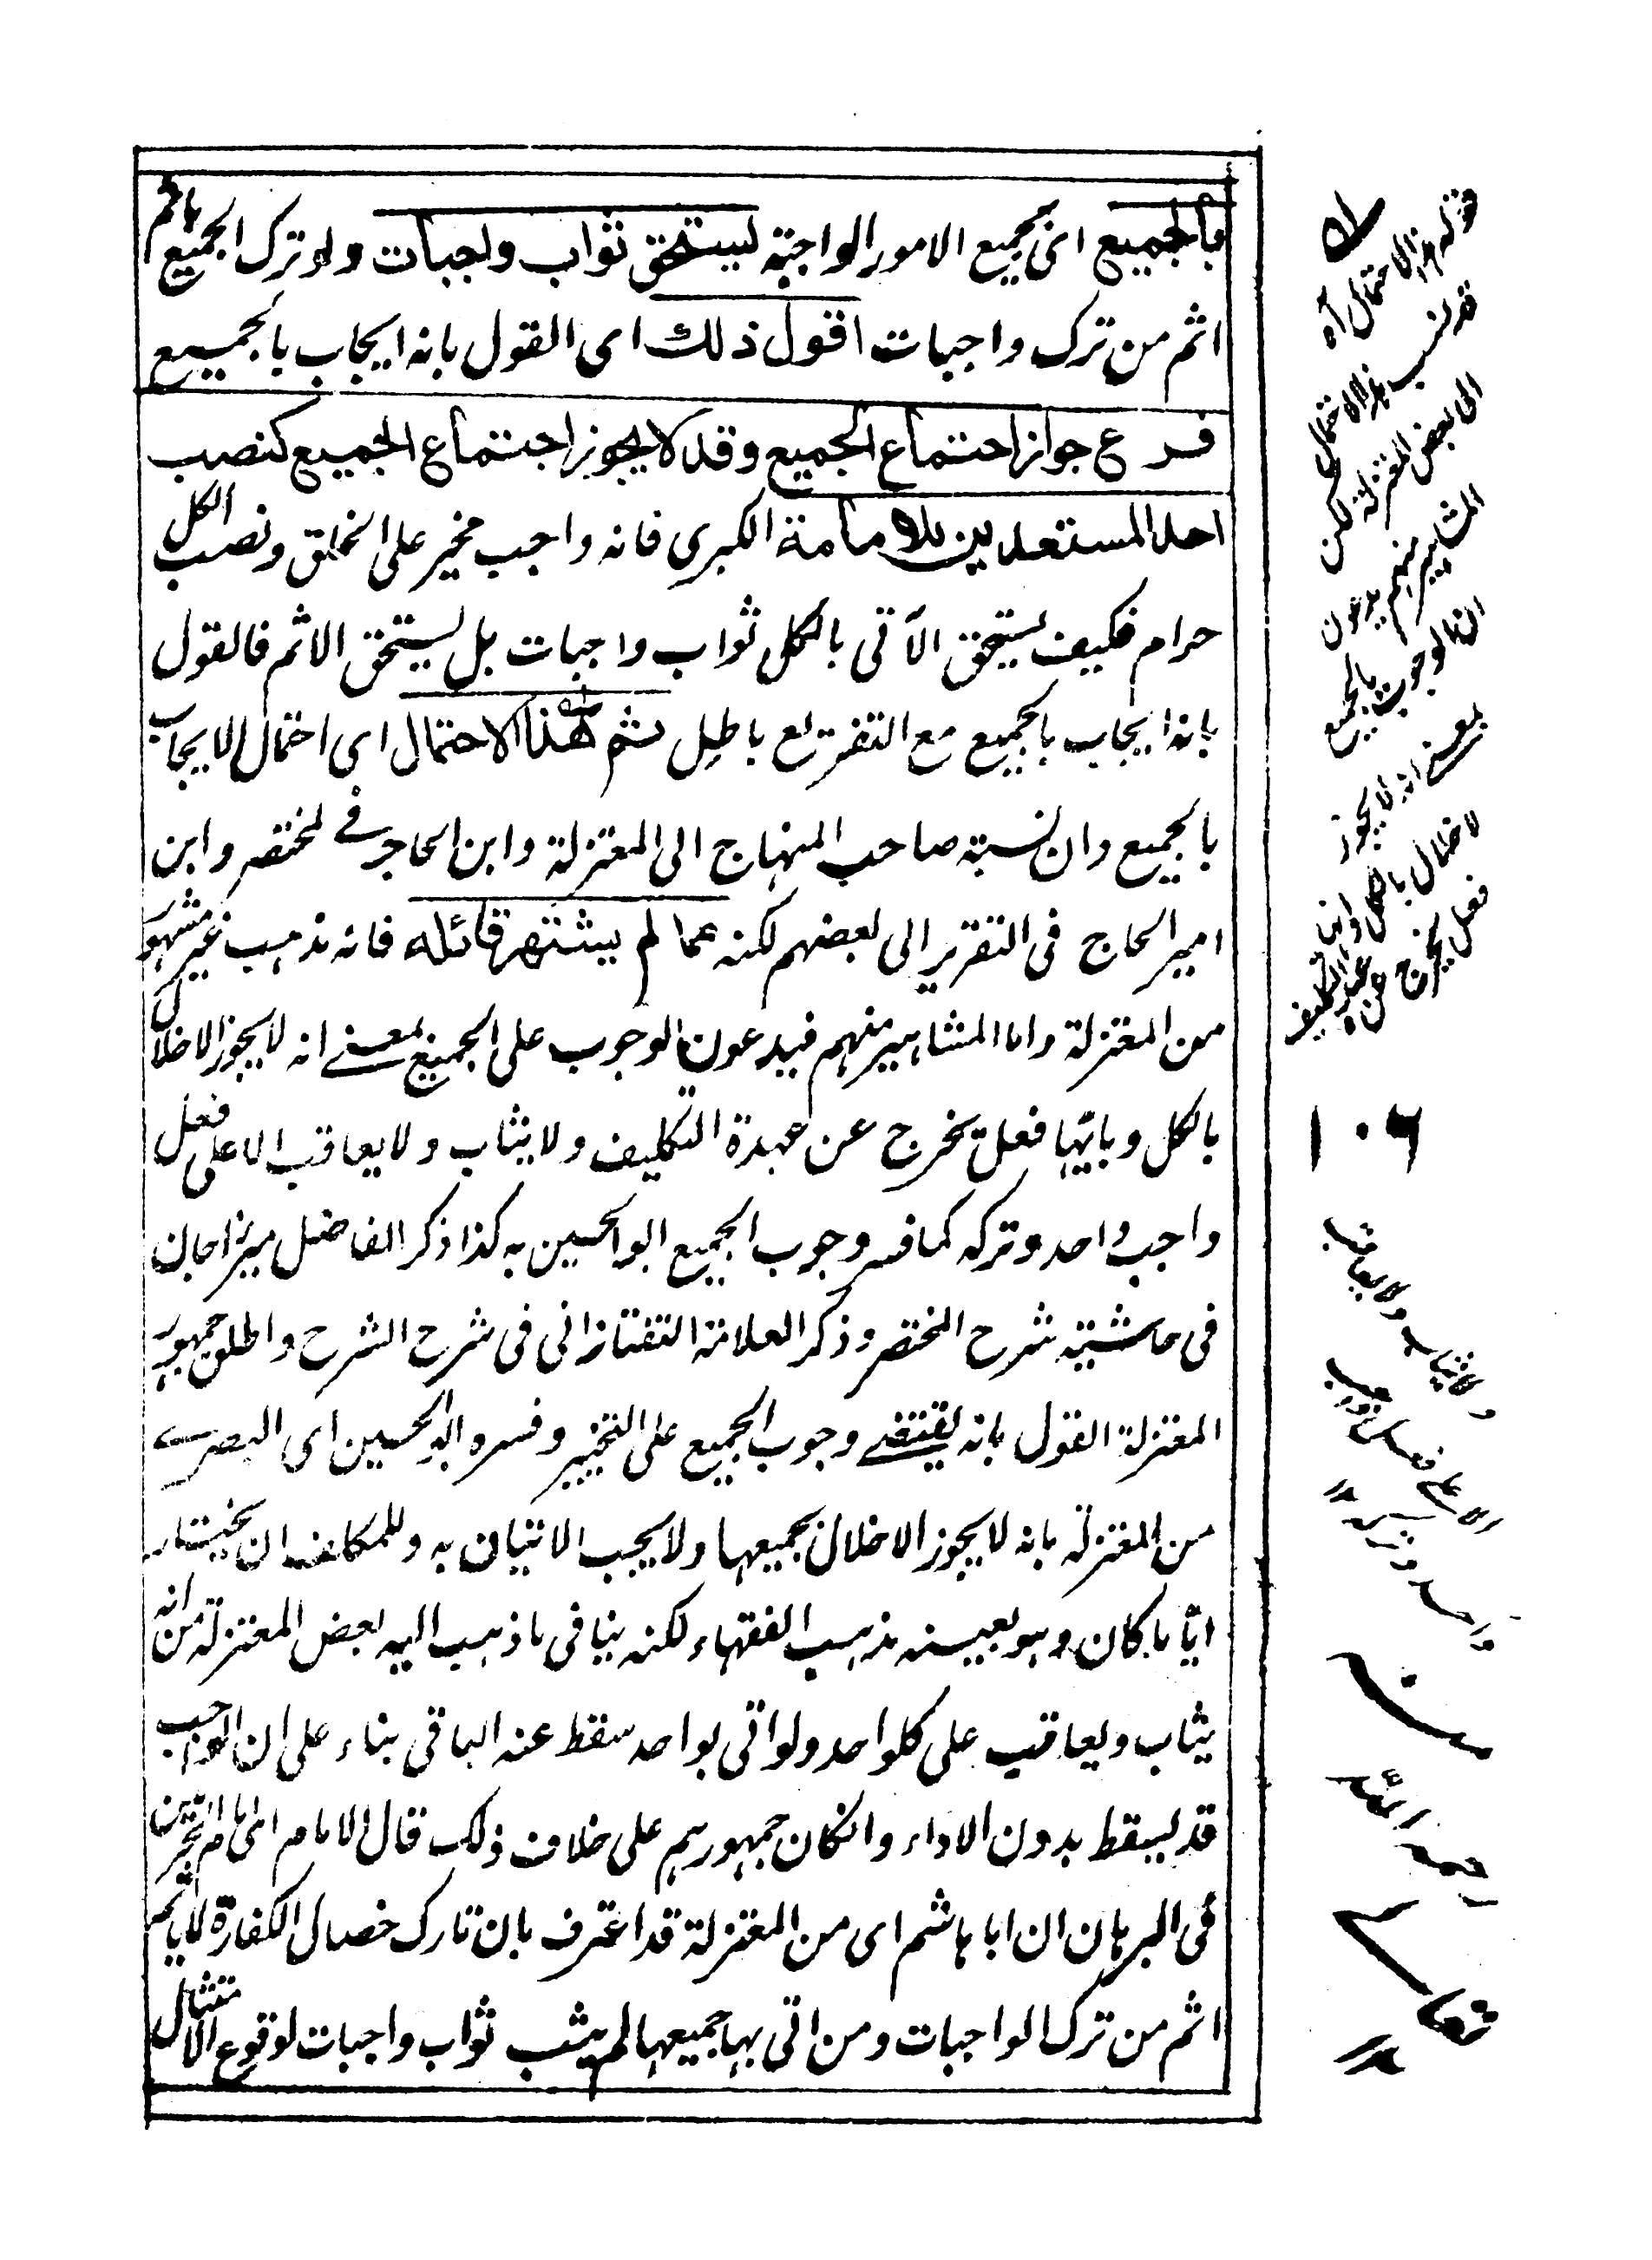 بالجميع اى بجميع الامور الواجبة ليستحق ثواب واجبات ولو ترك الجميع ياثم
اثم من ترك واجبات اقول ذلك اى القول بانه ايجاب بالجميع
فرع جواز اجتماع الجميع وقد لا يجوز اجتماع الجميع كنصب
احد المستعدين للامامة الكبرى فانه واجب مخير على الخلق ونصب الكل
حرام فكيف يستحق الآتى بالكل ثواب واجبات بل يستحق الاثم فالقول
بانه ايجاب بالجميع مع التفريع باطل ثم هذا الاحتمال اى احتمال الايجاب
بالجميع وان نسبته صاحب المنهاج الى المعتزلة وابن الحاجب فى المختصر وابن
امير الحاج فى التقرير الى بعضهم لكنه مما لم يشتهر قائله فانه مذهب غير مشهور
من المعتزلة واما المشاهير منهم فيدعون الوجوب على الجميع بمعنى انه لا يجوز الاخلال
بالكل وبايّها فعل يخرج عن عهدة التكليف ولا يثاب ولا يعاقب الا على فعل
واجب واحد وتركه كما فسر وجوب الجميع ابو الحسين به كذا ذكر الفاضل ميرزاجان
فى حاشيته شرح المختصر وذكر العلامة التفتازانى فى شرح الشرح واطلق جمهور
المعتزلة القول بانه يقتضى وجوب الجميع على التخيير وفسره ابو الحسين اى البصرى
من المعتزلة بانه لا يجوز الاخلال بجميعها ولا يجب الاتيان به وللمكلف ان يختار
ايّا ما كان وهو بعينه مذهب الفقهاء لكنه ينافى ما ذهب اليه بعض المعتزلة من انه
يثاب ويعاقب على كلواحد ولو اتى بواحد سقط عنه الباقى بناء على ان الواجب
قد يسقط بدون الاداء وانكان جمهورهم على خلاف ذلك قال الامام اى امام الحرمين
فى البرهان ان ابا هاشم اى من المعتزلة قد اعترف بان تارك خصال الكفارة لا ياثم
اثم من ترك الواجبات ومن اتى بها جميعها لم يثب ثواب واجبات لوقوع الامتثال
قوله هذا الاحتمال آه
قد نسب هذا الاحتمال
الى بعض المعتزلة لكن
المشاهير منهم يدعون
ان الوجوب بالجميع
بمعنى انه لا يجوز
الاخلال بالكل وان
فعل يخرج عن عهدة التكليف
١٠٦
ولا يثاب ولا يعاقب
الا على فعل واجب
واحد وتركه ١٢
منه
رحمه الله
تعالى
١٢